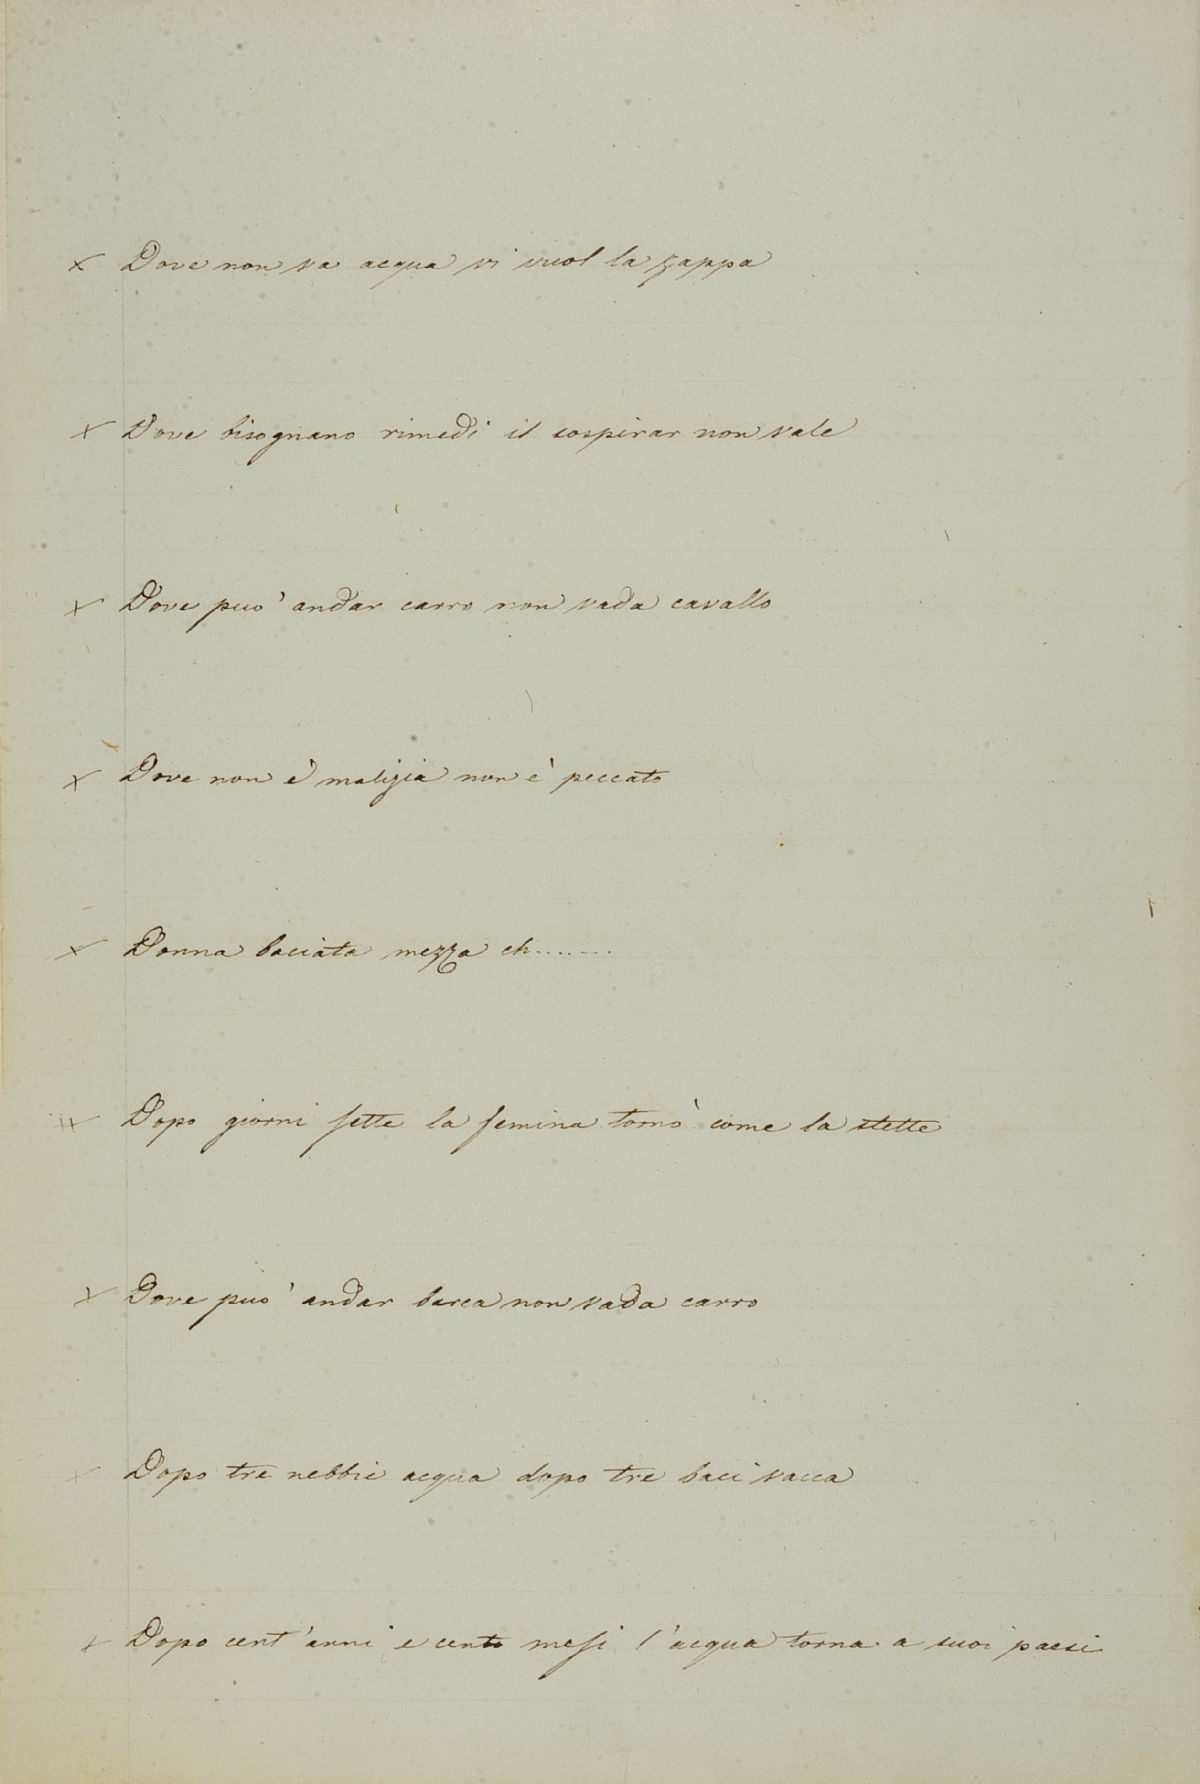 × Dove non va acqua vi vuol la zappa
× Dove bisognano rimedi il sospirar non vale
× Dove puo' andar carro non vada cavallo
× Dove non è malizia non è peccato
× Donna baciata mezza ch.......
× Dopo giorni sette la femina tornò come la stette
× Dove puo' andar barca non vada carro
× Dopo tre nebbie acqua dopo tre baci vacca
× Dopo cent'anni e cento mesi l'acqua torna a suoi paesi